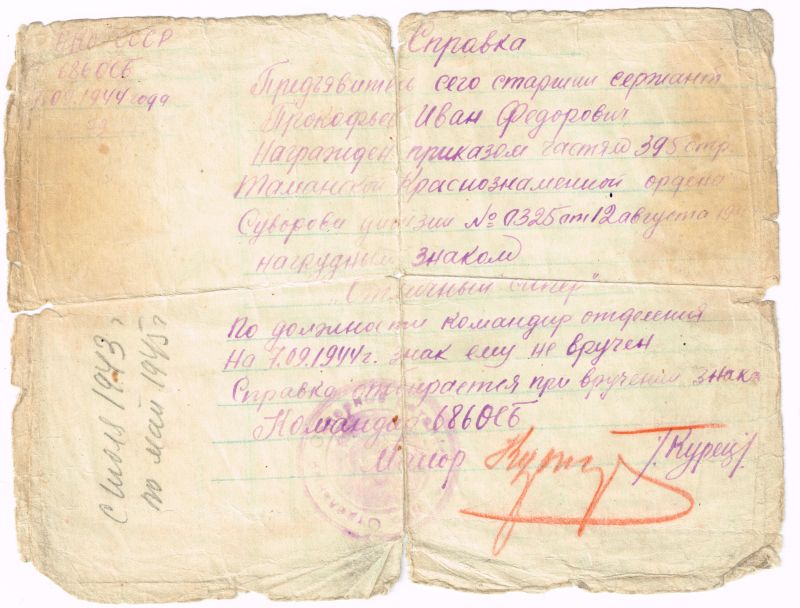 НКО СССР
686 ОСБ
7.09.1944 года
Справка
Предъявитель сего старший сержант
Прокофьев Иван Федорович
Награжден приказом частям 395 стр.
Таманской Краснознаменной ордена
Суворова дивизии № 0325 от 12 августа
нагрудным знаком
"Отличный сапер"
По должности командир отделения
На 7.09.1944 г. знак ему не вручен
Справка отбирается при вручении знака
Командир 686 ОСБ
Майор /Курец/.
с июля 1943 г
по май 1945 г